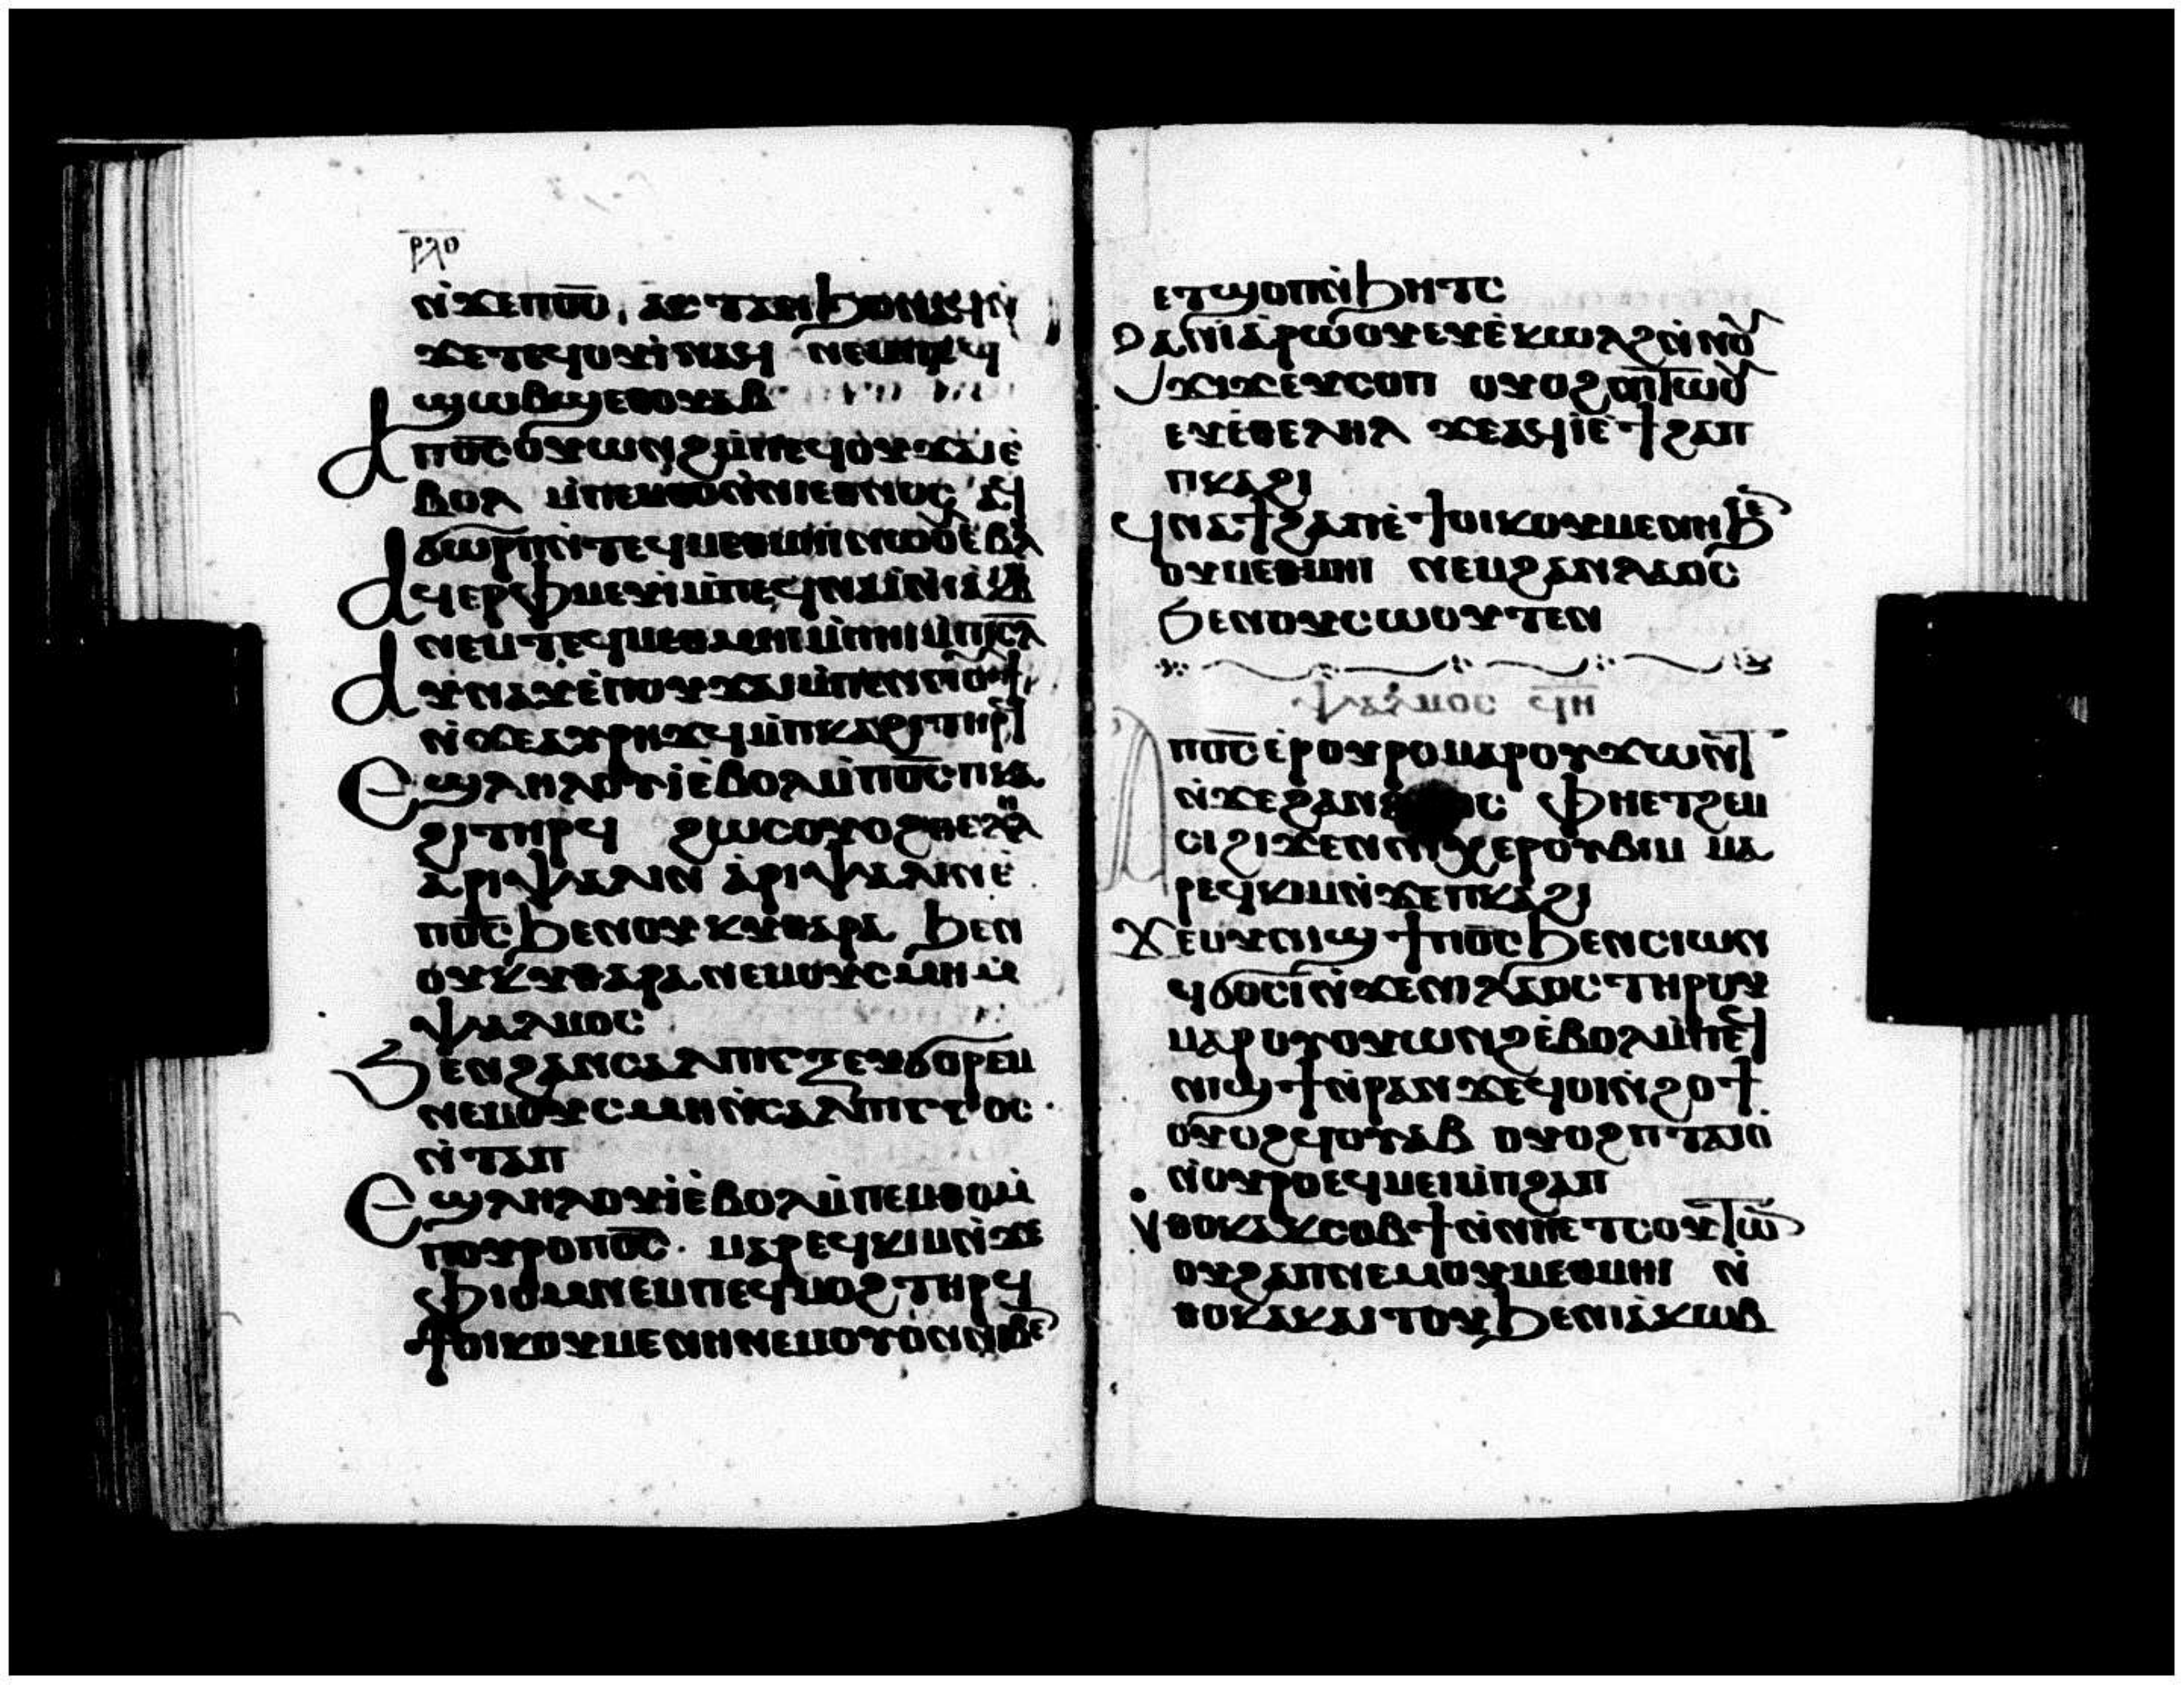 ⲣⲗⲑ
ⲛ̀ϫⲉⲡⲟ̅ⲥ̅ ⲁⲥⲧⲁⲛϧⲟⲛⲁϥⲛ̀
ϫⲉⲧⲉϥⲟⲩⲓ̀ⲛⲁⲙ ⲛⲉⲙⲡⲉϥ
ϣⲱⲃϣⲉⲑⲟⲩⲁⲃ
ⲁⲡⲟ̅ⲥ̅ⲟⲩⲱⲛϩⲙ̀ⲡⲉϥⲟⲩϫⲁⲓⲉ̀
ⲃⲟⲗ ⲙ̀ⲡⲉⲙⲑⲟⲛ̀ⲛⲓⲉⲑⲛⲟⲥ ⲁϥ
ϭⲱⲣⲡⲛ̀ⲧⲉϥⲙⲉⲑⲙⲏⲓⲛⲱⲟⲩⲉⲃⲟⲗ
ⲁϥⲉⲣⲫⲙⲉⲩⲓ̀ⲙ̀ⲡⲉϥⲛⲁⲓⲛ̀ⲓⲁⲕⲱⲃ
ⲛⲉⲙⲧⲉϥⲙⲉⲑⲙⲏⲓⲙ̀ⲡⲏⲓⲙ̀ⲡⲓⲥ̅ⲗ̅
ⲁⲩⲛⲁⲩⲉ̀ⲡⲟⲩϫⲁⲓⲙ̀ⲡⲉⲛⲛⲟⲩϯ
ⲛ̀ϫⲉⲁⲩⲣⲏϫϥⲙ̀ⲡⲕⲁϩⲓⲧⲏⲣϥ
ⲉϣⲗⲏⲗⲟⲩⲓⲉ̀ⲃⲟⲗⲙ̀ⲡⲟ̅ⲥ̅ⲡⲕⲁ
ϩⲓⲧⲏⲣϥ ϩⲱⲥⲟⲩⲟϩⲑⲉⲗⲏⲗ
ⲁⲣⲓⲯⲁⲗⲓⲛ ⲁ̀ⲣⲓⲯⲁⲗⲓⲛⲉ̀
ⲡⲟ̅ⲥ̅ϧⲉⲛⲟⲩⲕⲩⲑⲁⲣⲁ ϧⲉⲛ
ⲟⲩⲕⲩⲑⲁⲣⲁⲛⲉⲙⲟⲩⲥⲙⲏⲙ̀
ⲯⲁⲗⲙⲟⲥ
ϧⲉⲛϩⲁⲛⲥⲁⲗⲡⲓⲅⲝⲉⲩϭⲟⲣⲉⲙ
ⲛⲉⲙⲟⲩⲥⲙⲏⲛ̀ⲥⲁⲗⲡⲓⲅⲅⲟⲥ
ⲛ̀ⲧⲁⲡ
ⲉϣⲗⲏⲗⲟⲩⲓⲉ̀ⲃⲟⲗⲙ̀ⲡⲉⲙⲑⲟⲙ̀
ⲡⲟⲩⲣⲟⲡⲟ̅ⲥ̅ ⲙⲁⲣⲉϥⲕⲓⲙⲛ̀ϫⲉ
ⲫⲓⲟⲙⲛⲉⲙⲡⲉϥⲙⲟϩⲧⲏⲣϥ
ϯⲟⲓⲕⲟⲩⲙⲉⲛⲏⲛⲉⲙⲟⲩⲟⲛⲛⲓⲃⲉⲛ
ⲉⲧϣⲟⲡⲛ̀ϧⲏⲧⲥ
ⲑⲁⲛⲓⲁ̀ⲣⲱⲟⲩⲉⲩⲉ̀ⲕⲱⲗϩⲛ̀ⲛⲟⲩ
ϫⲓϫⲉⲩⲥⲟⲡ ⲟⲩⲟϩⲛⲓⲧⲱⲟⲩ
ⲉⲩⲉ̀ⲑⲉⲗⲏⲗ ϫⲉⲁϥⲓⲉ̀ϯϩⲁⲡ
ⲡⲕⲁϩⲓ
ϥⲛⲁϯϩⲁⲡⲉ̀ϯⲟⲓⲕⲟⲩⲙⲉⲛⲏϧⲉⲛ
ⲟⲩⲙⲉⲑⲙⲏⲓ ⲛⲉⲙϩⲁⲛⲗⲁⲟⲥ
ϧⲉⲛⲟⲩⲥⲱⲟⲩⲧⲉⲛ
ⲯⲁⲗⲙⲟⲥ ϥ̅ⲏ̅
ⲁⲡⲟ̅ⲥ̅ⲉ̀ⲣⲟⲩⲣⲟⲙⲁⲣⲟⲩϫⲱⲛⲧ
ⲛ̀ϫⲉϩⲁⲛⲗⲁⲟⲥ ⲫⲏⲉⲧϩⲉⲙ
ⲥⲓϩⲓϫⲉⲛⲛⲓⲭⲉⲣⲟⲩⲃⲓⲙ ⲙⲁ
ⲣⲉϥⲕⲓⲙⲛ̀ϫⲉⲡⲕⲁϩⲓ
ϫⲉⲟⲩⲛⲓϣϯⲡⲟ̅ⲥ̅ϧⲉⲛⲥⲓⲱⲛ
ϥϭⲟⲥⲓⲛ̀ϫⲉⲛⲓⲗⲁⲟⲥⲧⲏⲣⲟⲩ
ⲙⲁⲣⲟⲩⲟⲩⲱⲛϩⲉ̀ⲃⲟⲗⲙ̀ⲡⲉⲕ
ⲛⲓϣϯⲛ̀ⲣⲁⲛϫⲉϥⲟⲓⲛ̀ϩⲟϯ
ⲟⲩⲟϩϥⲟⲩⲁⲃ ⲟⲩⲟϩⲡⲧⲁⲓⲟ
ⲛ̀ⲟⲩⲣⲟⲉϥⲙⲉⲓⲙ̀ⲡϩⲁⲡ
ⲛ̀ⲑⲟⲕⲁⲕⲥⲟⲃϯⲛ̀ⲛⲏⲉⲧⲥⲟⲩⲧⲱⲛ
ⲟⲩϩⲁⲡⲛⲉⲙⲟⲩⲙⲉⲑⲙⲏⲓ ⲛ̀
ⲑⲟⲕⲁⲕⲁⲓⲧⲟⲩϧⲉⲛⲓⲁⲕⲱⲃ